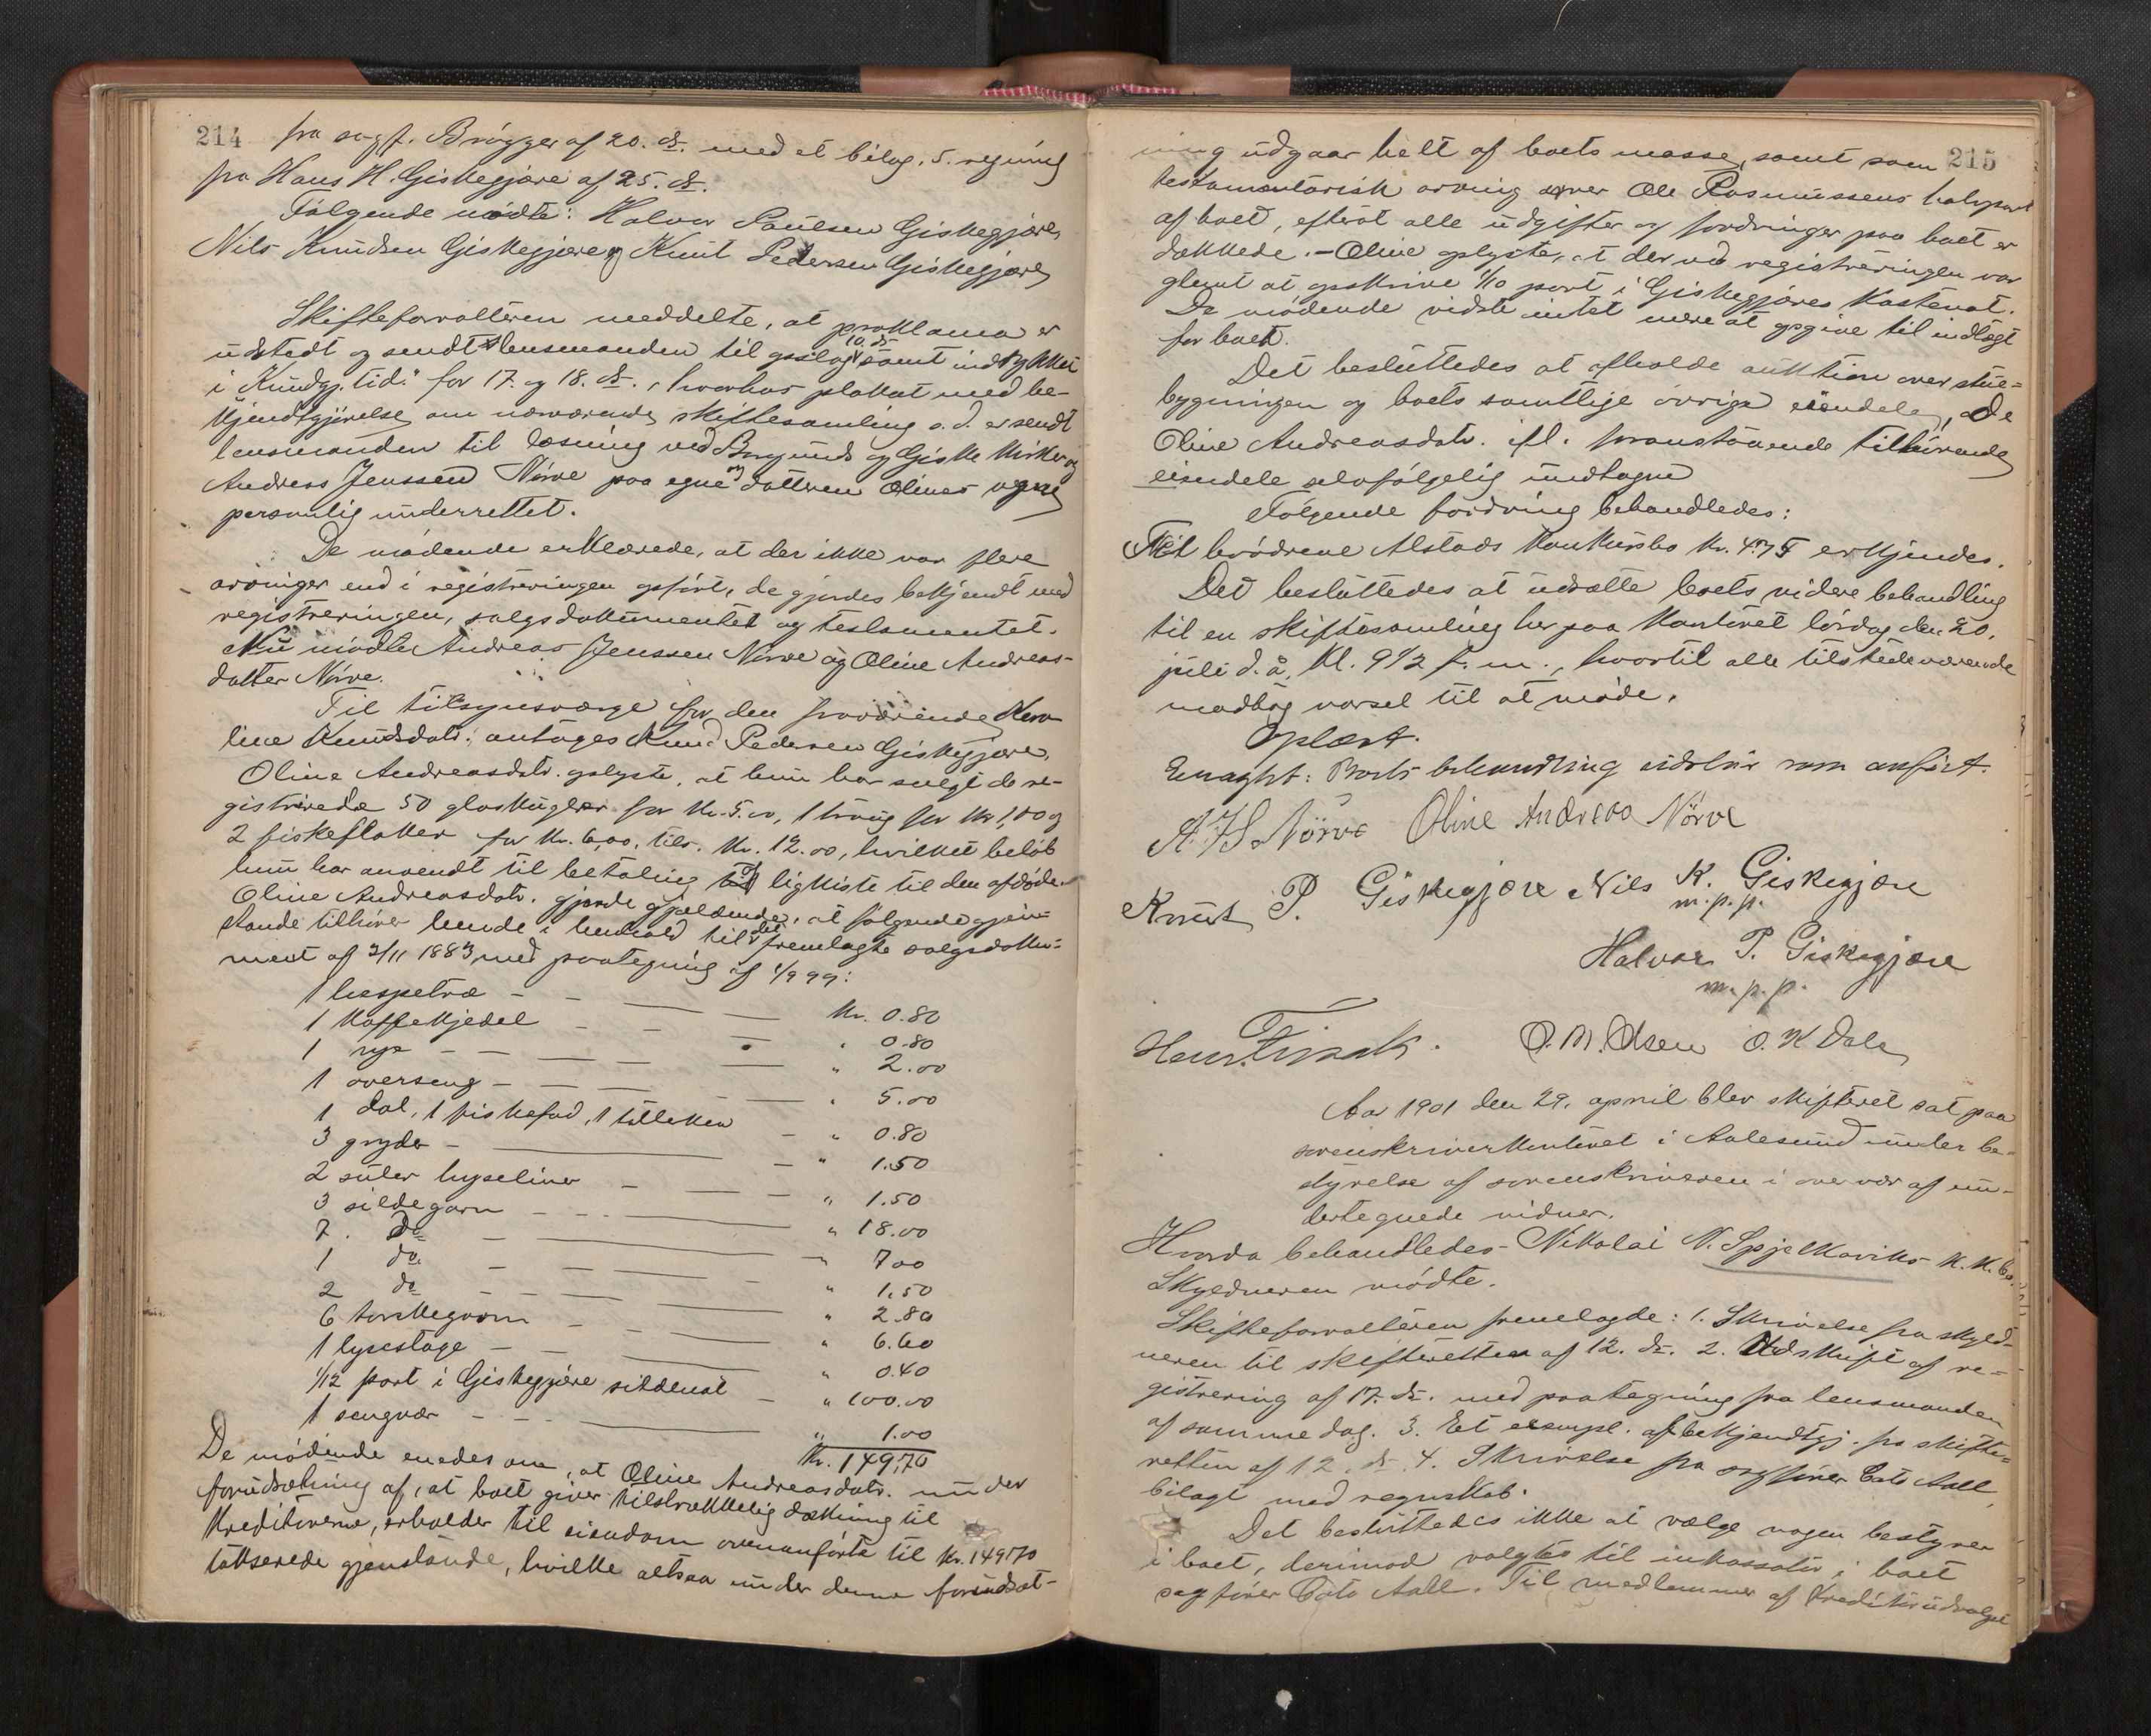 214
fra sagf. Brøgger af 20. ds. med et bilag. 5. regning
fra Hans H. Giskegjære af 25. ds.
Følgende mødte: Halvar Paulsen Giskegjære,
Nils Knudsen Giskegjære og Knut Pedersen Giskegjære
Skifteforvalteren meddelte, at proklama er
udstedt og sendt lensmanden til opslag 10. ds. samt indrykket
i "Kundgj. tid." for 17. og 18. ds., hvorhos plakat med be-
kjendtgjørelse om nærværende skiftesamling s. d. er sendt
lensmanden til læsning ved Borgunds og Giske kirker og
Andreas Jenssen Nørve paa egne og datteren Olines vegne
personlig underrettet.
De mødende erklærede, at der ikke var flere
arvinger end i registreringen opført, de gjordes bekjendt med
registreringen, salgsdokumentet og testamentet.
Nu mødte Andreas Jenssen Nørve og Oline Andreas-
datter Nørve.
Til tilsynsværge for den fraværende Karo-
line Knudsdatr. antages Knud Pedersen Giskegjære.
Oline Andreasdatr. oplyste, at hun har solgt de re-
gistrerede 50 glaskugler for kr. 5.00, 1 traug for kr 1,00 og
2 fiskeflaker for kr. 6,00, tils. kr. 12.00, hvilket beløb
hun har anvendt til betaling af ligkiste til den afdøde.
Oline Andreasdatr. gjorde gjældende, at følgende gjen-
stande tilhører hende i henhold til det fremlagte salgsdoku-
ment af 3/11 1883, med paategning af 1/9 99:
1 hespetræ - - - Kr. 0.80
1 kaffekjedel - - " 0.80
1 rye - - - " 2.00
1 overseng - - - " 5.00
1 dal, 1 fiskefad, 1 talleken - " 0.80
3 gryder - - " 1.50
2 suler hyseliner - - " 1.50
3 sildegarn - - " 18.00
7. do - - " 7 00
1 do. - - " 1.50
2 do - - " 2.80
6 torskegarn - - " 6.60
1 lysestage - - " 0.40
1/12 part i Giskegjære sildenot - " 100.00
1 sengvær - - " 1.00
Kr. 149,70
De mødende enedes om, at Oline Andreasdatr. under
forudsætning af, at boet giver tilstrækkelig dækning til
kreditorerne, erholder til eiendom ovenanførte til kr. 149 70
takserede gjenstande, hvilke altsaa under denne forudsæt-
215
ning udgaar helt af boets masse, samt som
testamentarisk arving arver Ole Rasmussens halvpart
af boet, efterat alle udgifter og fordringer paa boet er
dækkede. - Oline oplyste, at der ved registreringen var
glemt at opskrive 1/10 part i Giskegjæres kastenot.
De mødende vidste intet mere at opgive til indtægt
for boet.
Det besluttedes at afholde auktion over stue-
bygningen og boets samtlige øvrige eiendele, de
Oline Andreasdatr. ifl. foranstaaende tilhørende
eiendele selvfølgelig undtagne
Følgende fordring behandledes:
Til brødrene Alstads konkursbo kr. 4.75 erkjendes.
Det besluttedes at udsætte boets videre behandling
til en skiftesamling her paa kontoret lørdag den 20.
juli d. å. kl. 9 1/2 f. m., hvortil alle tilstedeværende
modtog varsel til at møde.
Oplæst.
Eragtet: Boets behandling udstaar som anført.
A. J S Nørve Oline Andreas Nørve
Knut P. Giskegjære Nils K. Giskegjære
m. p. p.
Halvar P. Giskegjære
m. p. p.
O. M. Olsen O. K Dale
Aar 1901 den 29. april blev skifteret sat paa
sorenskriverkontoret i Aalesund under be-
styrelse af sorenskriveren i overvær af un-
dertegnede vidner.
Hvorda behandledes Nikolai N. Spjelkaviks k. k. bo.
Skyldneren mødte.
Skifteforvalteren fremlagde: 1. Skrivelse fra skyld-
neren til skifteretten af 12. ds. 2. Udskrift af re-
gistrering af 17. ds. med paategning fra lensmanden
af samme dag. 3. Et exempl. af bekjendtgj. fra skifte-
retten af 12. ds. 4. Skrivelse fra sagfører Cato Aall,
bilagt med regnskab.
Det besluttedes ikke at vælge nogen bestyrer
i boet, derimod valgtes til inkassator i boet
sagfører Cato Aall. Til medlemmer af kreditorudvalget